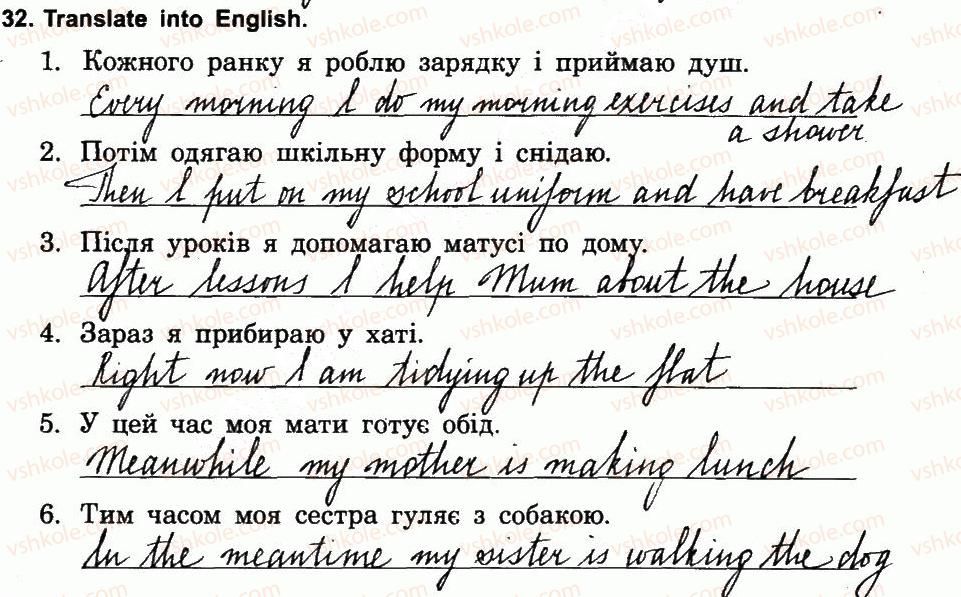 32. Translate into English.
1. Кожного ранку я роблю зарядку і приймаю душ.
Every morning I do my morning exercises and take
a shower
2. Потім одягаю шкільну форму і снідаю.
Then I put on my school uniform and have breakfast
3. Після уроків я допомагаю матусі по дому.
After lessons I help Mum about the house
4. Зараз я прибираю у хаті.
Right now I am tidying up the flat
5. У цей час моя мати готує обід.
Meanwhile my mother is making lunch
6. Тим часом моя сестра гуляє з собакою.
In the meantime my sister is walking the dog